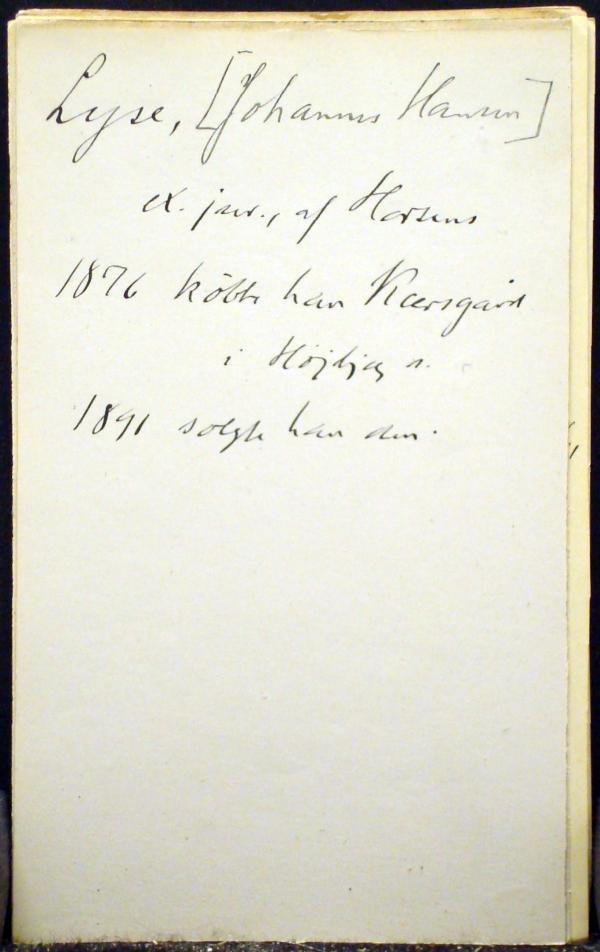 Lyse, [Johannes Hansen]
ex. jur., af Horsens
1876 köbte han Kærsgård
i Højbjærg s.
1891 solgte han den.